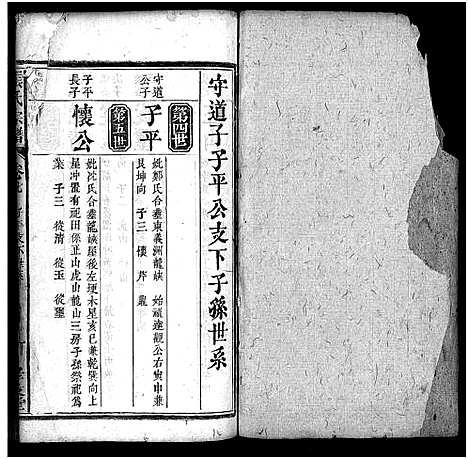 守道子子平公支下子孫世系
第四世
守道公子
子平
妣鄭氏合塟東義洲龍族 始祖達觀公右寅申兼
艮坤向 子三 懷 芹 嵗
第五世
子平長子
懷公
妣沈氏合塟龍族屋後左埂木星亥巳兼乾巽向上
星冲置有祀田係正山虎山龍山三房子孫祭祀為
業 子三 從清 從玉 從聖
氏宗譜